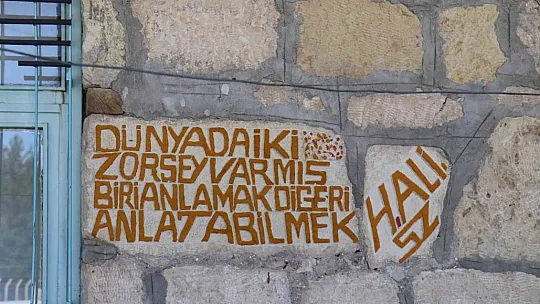 DÜNYADA İKİ
ZOR ŞEY VARMIŞ
BİRİ ANLAMAK DİĞERİ
ANLATABİLMEK
H.ALİ.
SZ